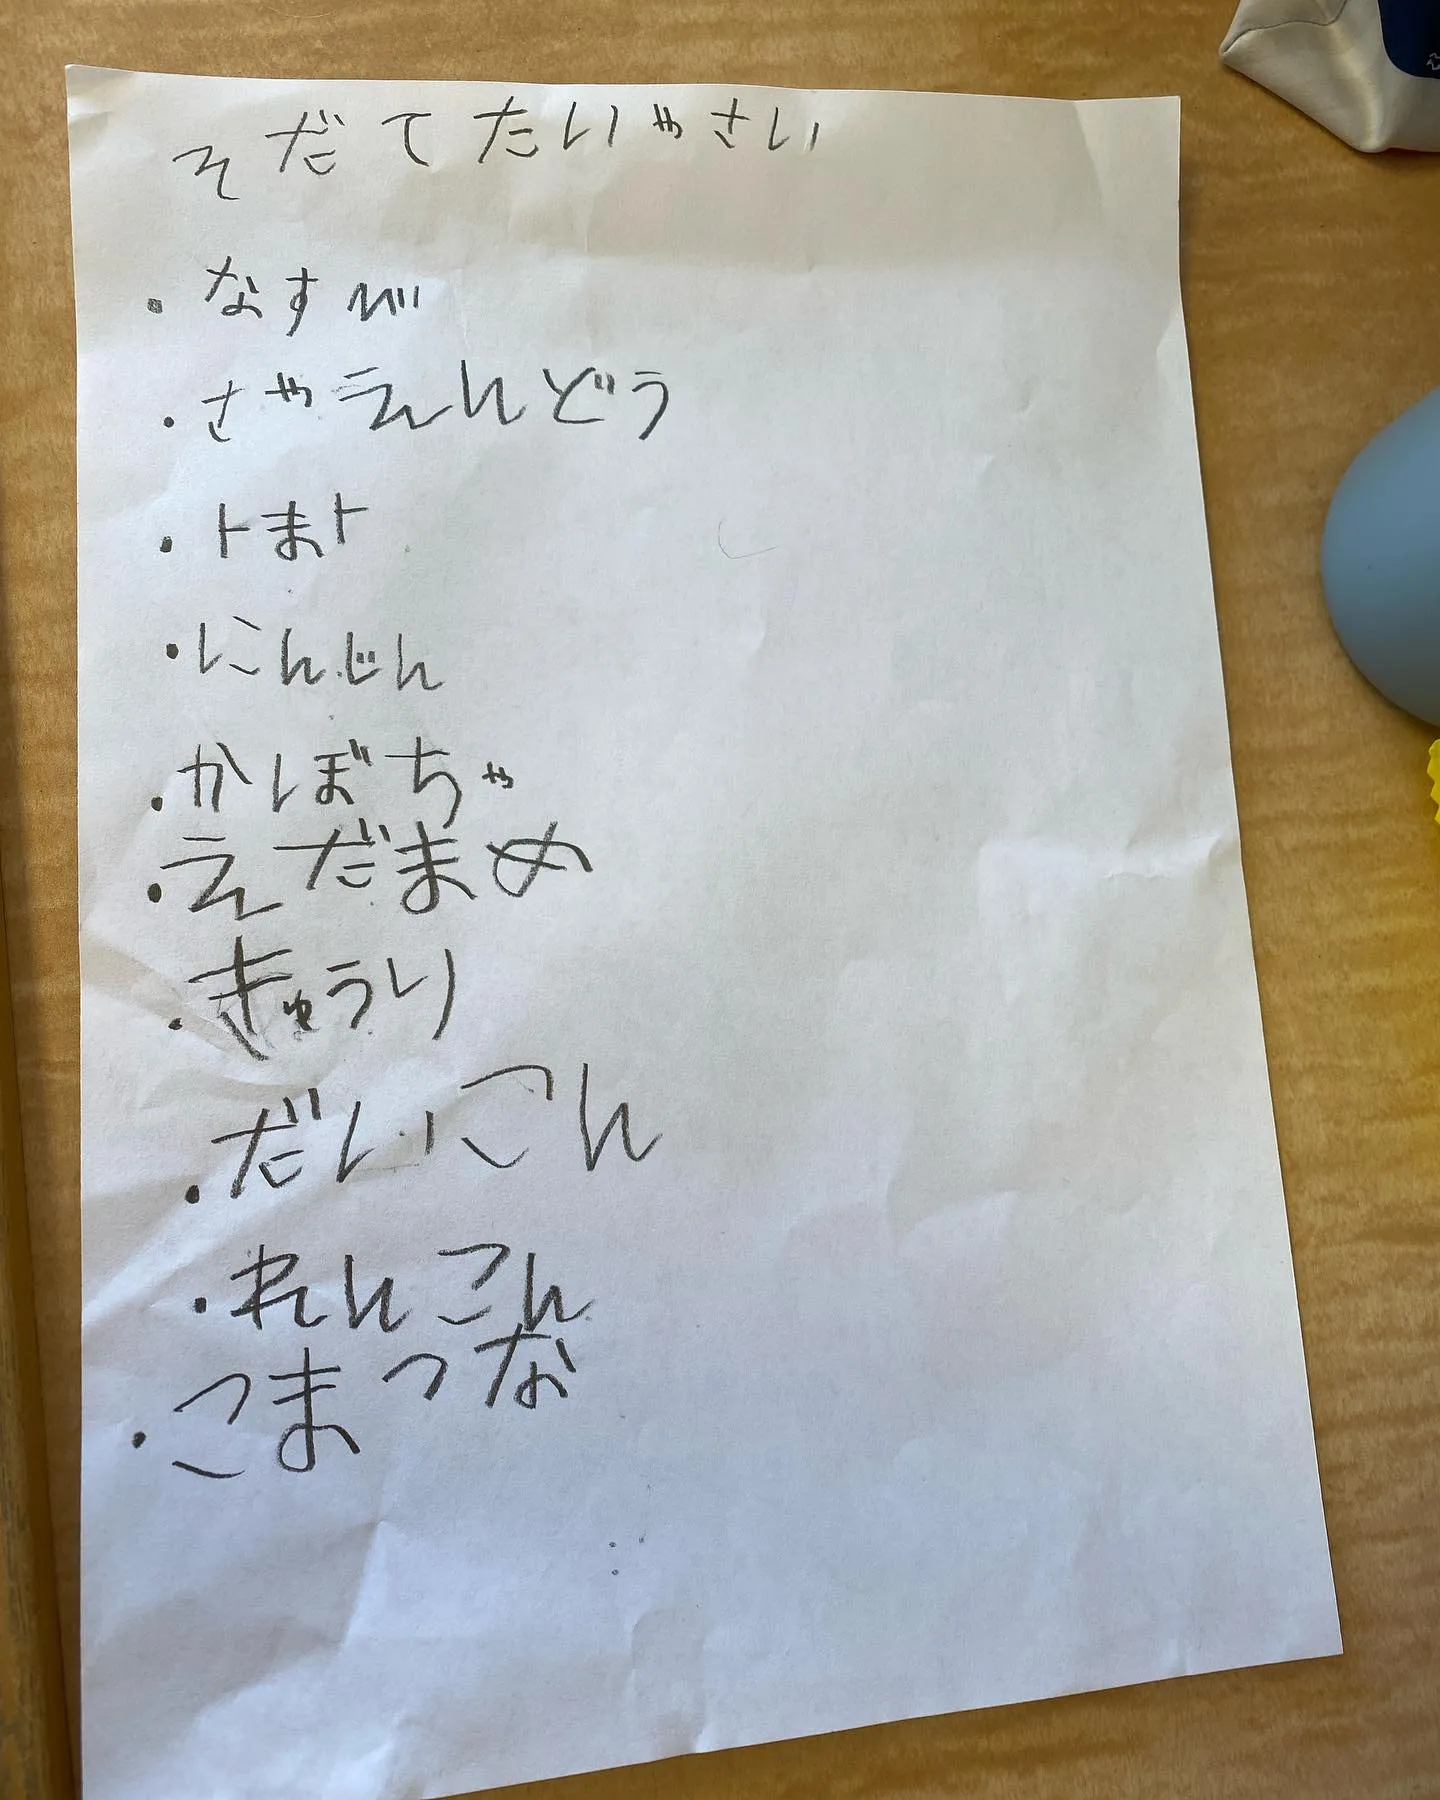 そだてたいやさい
・なすび
・さやえんどう
・トまト
・にんじん
・かぼちゃ
・えだまめ
・きゅうり
・だいこん
・れんこん
・こまつな